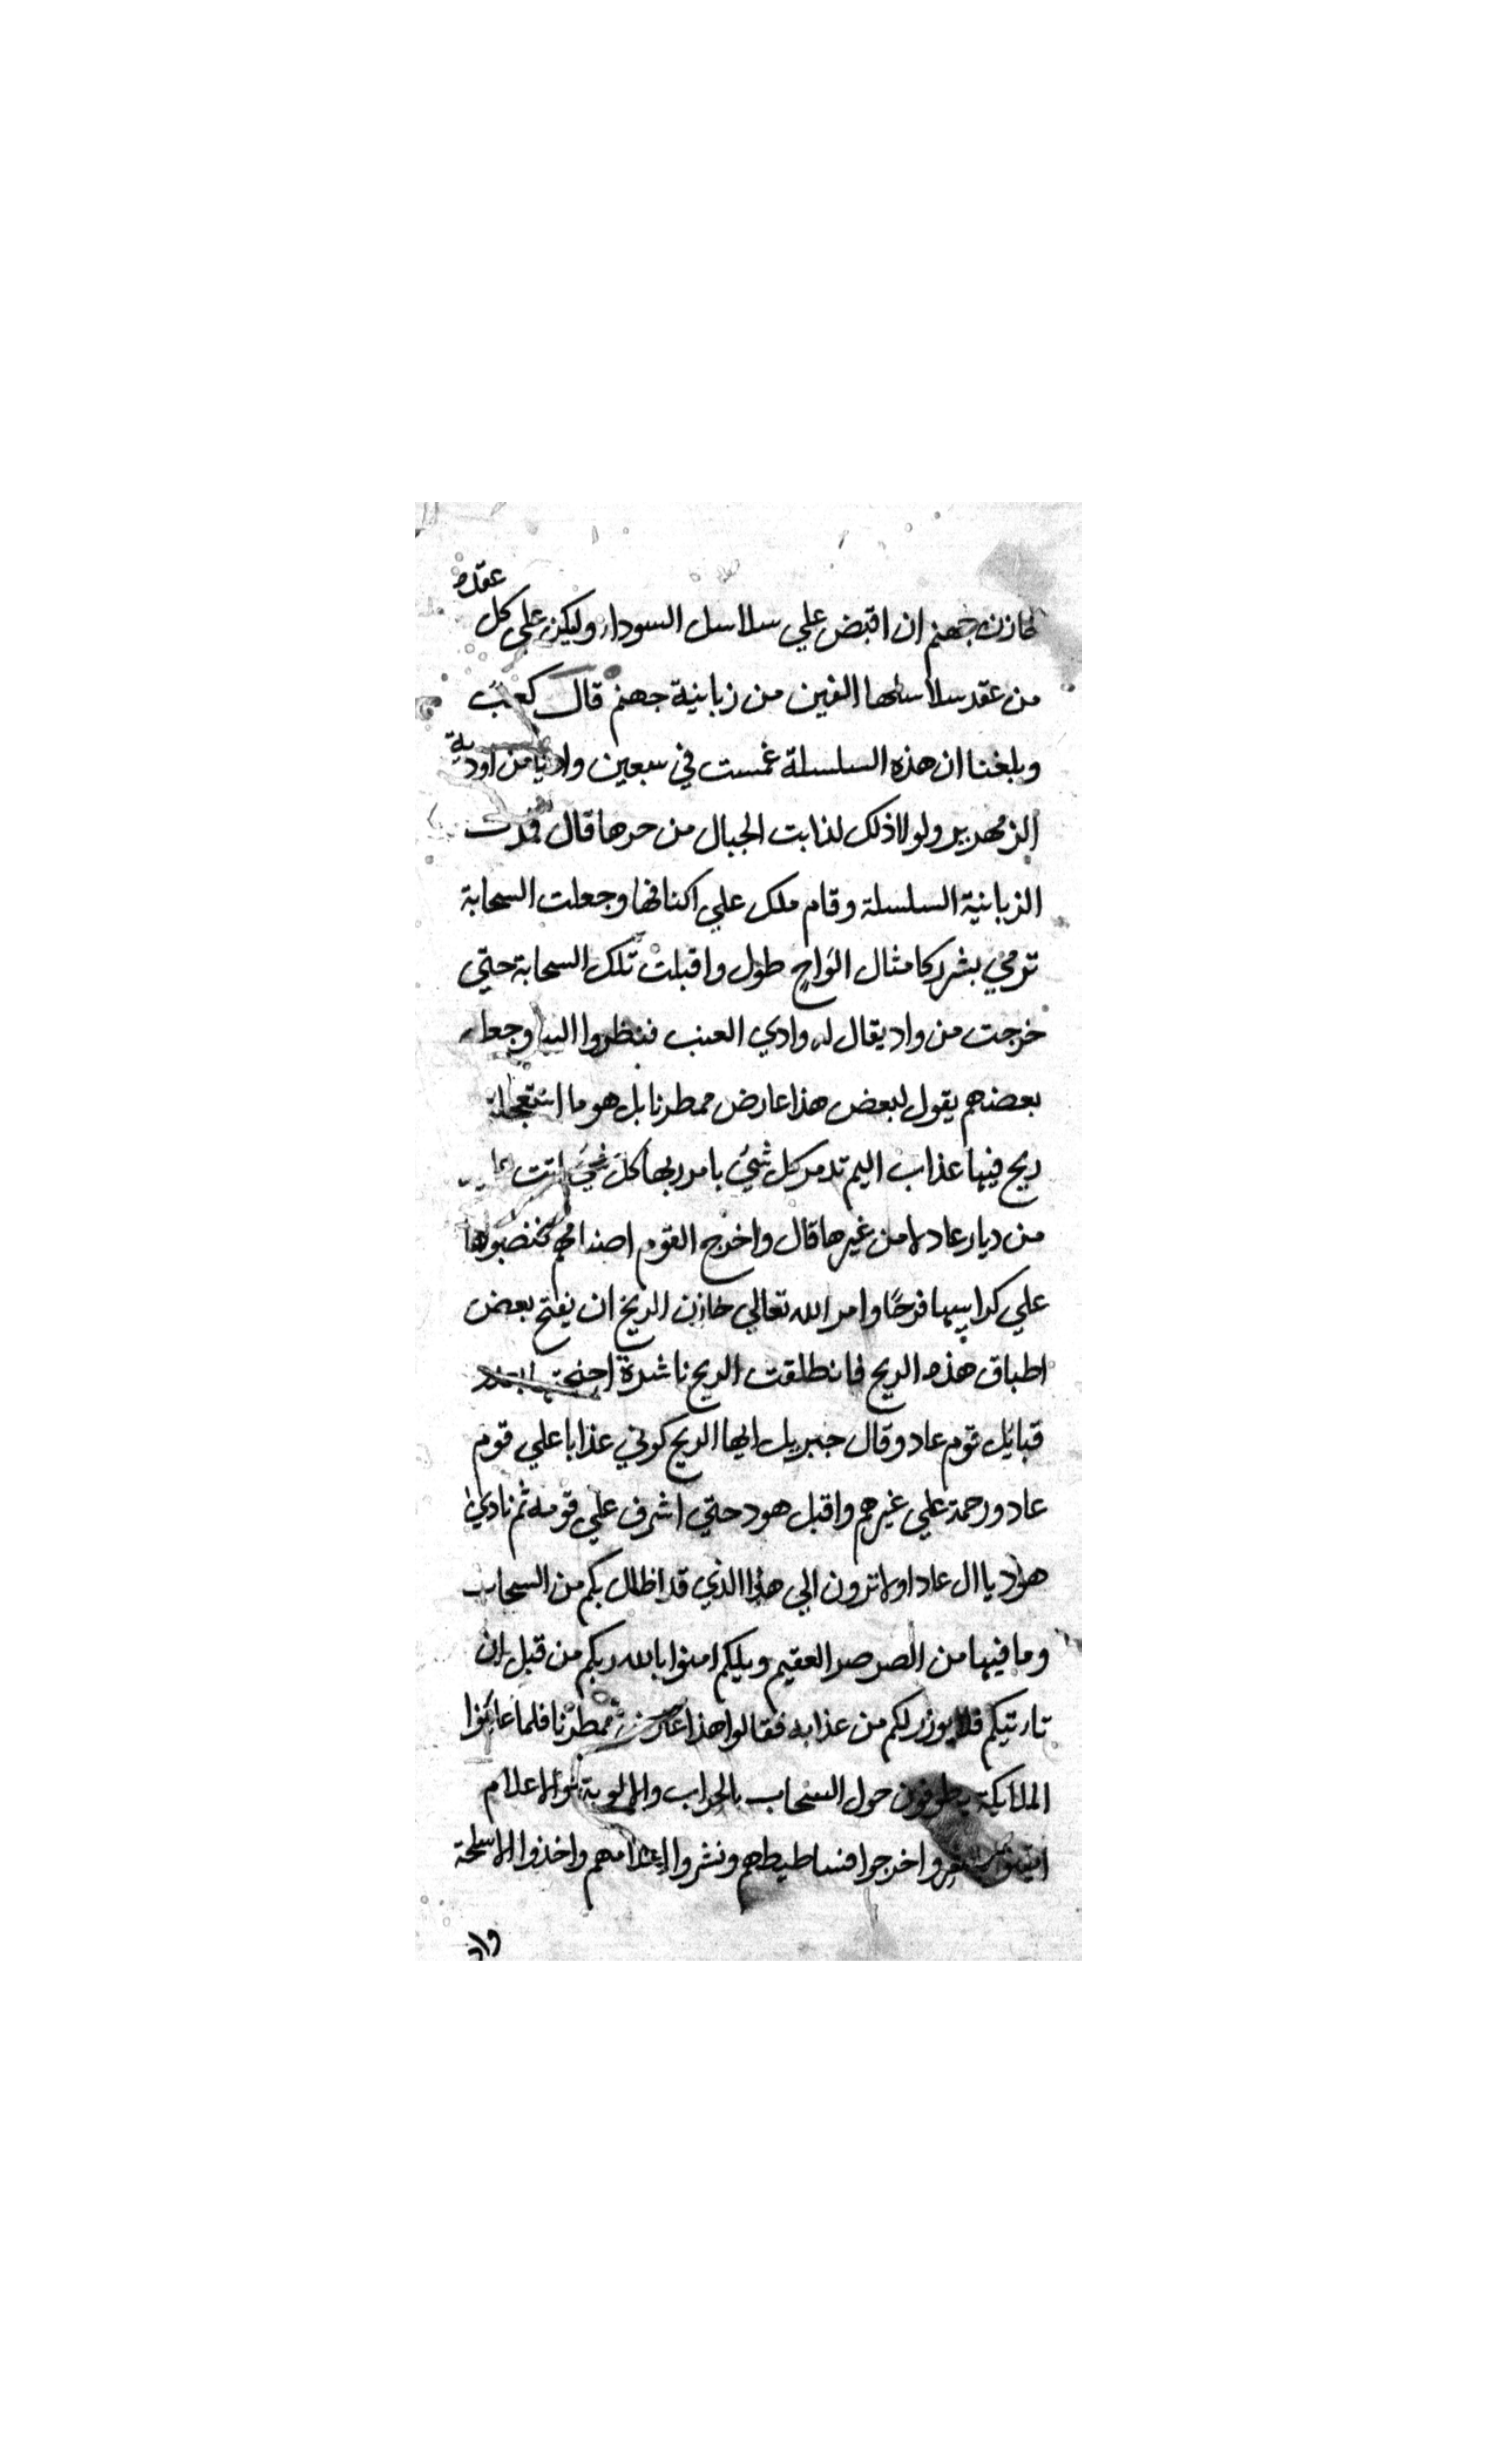 لخازن جهنم ان اقبض علي سلاسل السودا وليكن علي كل عقدة
من عقد سلاسلها الفين من زبانية جهنم قال كعب
وبلغنا ان هذه السلسلة غمست في سبعين واديا من اودية
الزمهرير ولولا ذلك لذابت الجبال من حرها قال فمدت
الزبانية السلسلة وقام ملك علي اكنافها وجعلت السحابة
ترمي بشرر كامثال الواح طول واقبلت تلك السحابة حتي
خرجت من واد يقال له وادي العنب فنظروا اليها وجعل
بعضهم يقول لبعض هذا عارض ممطرنا بل هو ما استعجلتم
ريح فيها عذاب اليم تدمر كل شيء بامر ربها كل شيء اتت
من ديار عاد لا من غيرها قال واخرج القوم اصنامهم فنصبوها
علي كراسيها فرحًا وامر الله تعالي خازن الريح ان يفتح بعض
اطباق هذه الريح فانطلقت الريح ناشرة اجنحتها
قبايل قوم عاد وقال جبريل ايها الريح كوني عذابا علي قوم
عاد ورحمة علي غيرهم واقبل هود حتي اشرف علي قومه ثم نادي
هود يا ال عاد اولا ترون الي هذا الذي قد اظال بكم من السحاب
وما فيها من الصرصر العقيم ويلكم امنوا بالله ربكم من قبل ان
تارتيكم فلا يوزر لكم من عذابه فقالوا هذا عارض ممطرنا فلما عاينوا
الملايكة يطوفون حول السحاب بالحراب والالوية والاعلام
واخرجوا فساطيطهم ونشروا اعلامهم واخذوا الاسلحة